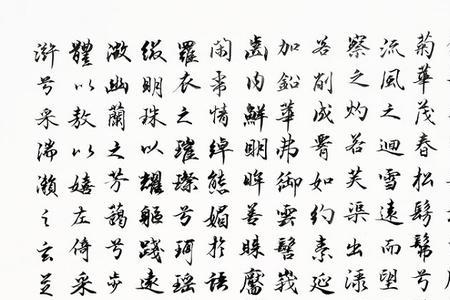 菊華茂春松髣髴兮
流風之迴雪遠而望
察之灼若芙蕖出渌
若削成肩如約素延
加鉛華弗御雲髻峩
齒内鮮明眸善睞靨
閑柔情綽態媚於語
羅衣之璀璨兮珥瑶
綴明珠以耀軀踐遠
微幽蘭之芳藹兮步
體以敖以嬉左倚采
滸兮采湍瀨之玄芝